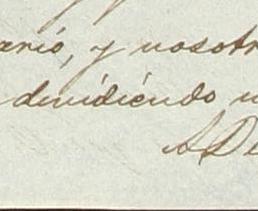 ario, y nosotr
dividiendo u
ADe